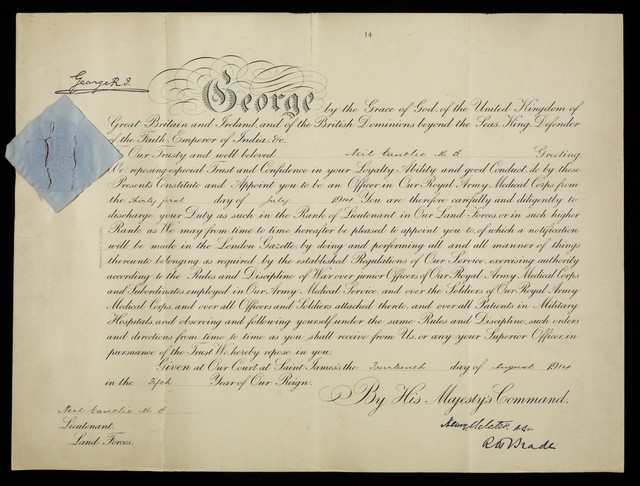 14
George R.I.
George by the Grace of God, of the United Kingdom of
Great Britain and Ireland, and of the British Dominions beyond the Seas, King, Defender
of the Faith, Emperor of India, &c.
To Our Trusty and well beloved Neil Cantlie M.B. Greeting
We, reposing especial Trust and Confidence in your Loyalty, Ability, and good Conduct, do by these
Presents Constitute and Appoint you to be an Officer in Our Royal Army Medical Corps from
the thirty first day of July 1914 You are therefore carefully and diligently to
discharge your Duty as such in the Rank of Lieutenant in Our Land Forces, or in such higher
Rank as We may from time to time hereafter be pleased to appoint you to, of which a notification
will be made in the London Gazette, by doing and performing all and all manner of things
thereunto belonging, as required by the established Regulations of Our Service, exercising authority
according to the Rules and Discipline of War over junior Officers of Our Royal Army Medical Corps
and Subordinates employed in Our Army Medical Service and over the Soldiers of Our Royal Army
Medical Corps, and over all Officers and Soldiers attached thereto, and over all Patients in Military
Hospitals, and observing and following yourself, under the same Rules and Discipline, such orders
and directions from time to time as you shall receive from Us, or any your Superior Officer, in
pursuance of the Trust We hereby repose in you.
Given at Our Court at Saint James's the Fourteenth day of August 1914
in the Fifth Year of Our Reign.
By His Majesty's Command.
Neil Cantlie M.B.
Lieutenant
Land Forces.
R H Brade